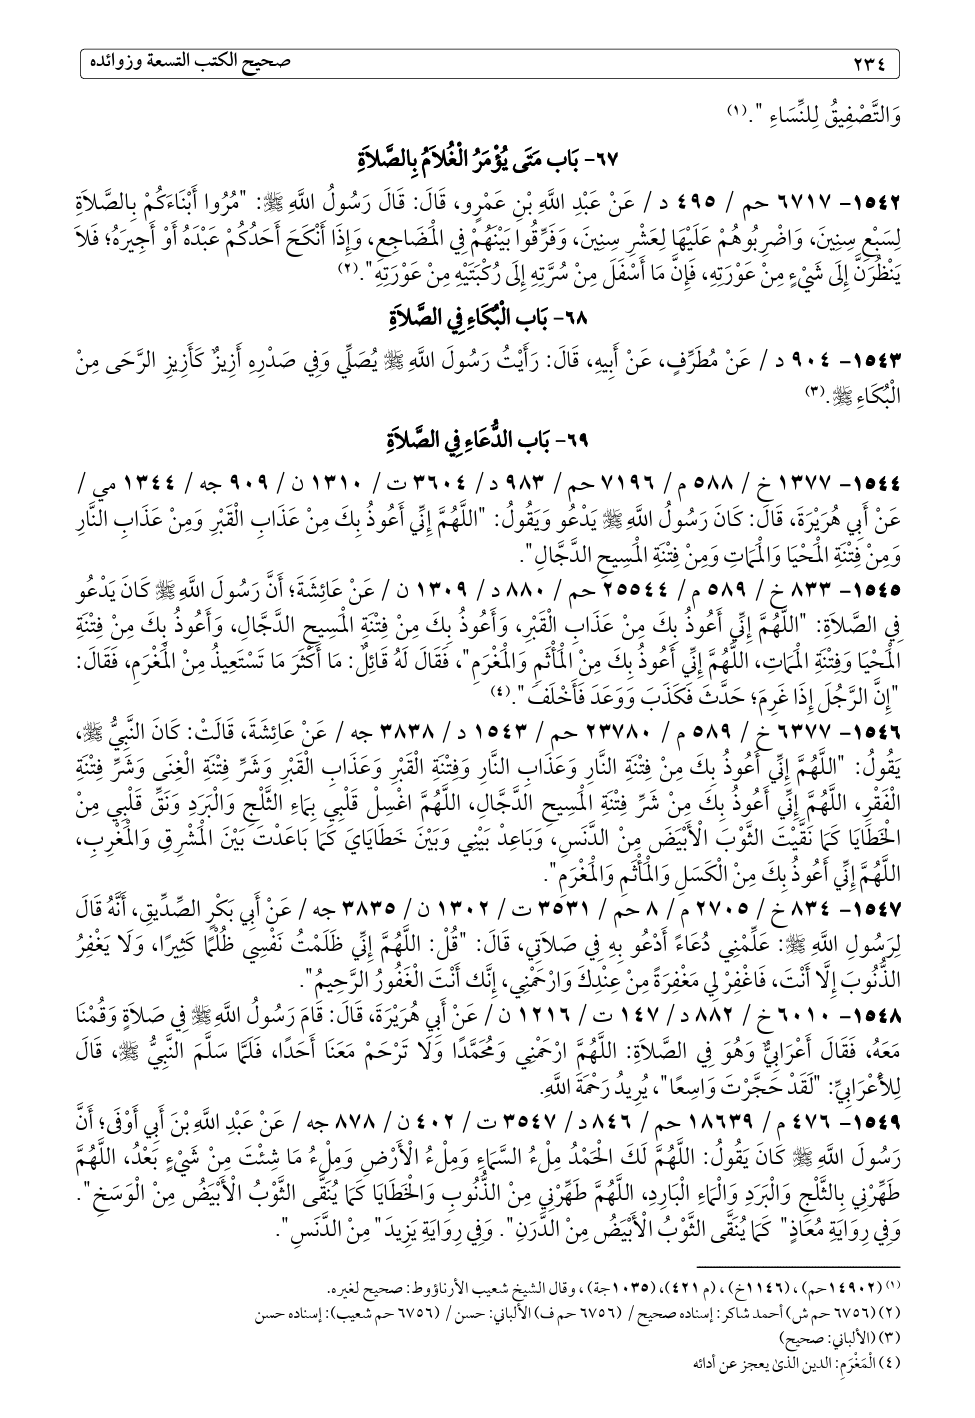 ٢٣٤ صحيح الكتب التسعة وزوائده
وَالتَّصْفِيقُ لِلنِّسَاءِ ".(١)
٦٧- بَاب مَتَى يُؤْمَرُ الْغُلَامُ بِالصَّلاَةِ
١٥٤٢- ٦٧١٧ حم / ٤٩٥ د / عَنْ عَبْدِ اللَّهِ بْنِ عَمْرٍو، قَالَ: قَالَ رَسُولُ اللَّهِ ﷺ: "مُرُوا أَبْنَاءَكُمْ بِالصَّلَاةِ
لِسَبْعِ سِنِينَ، وَاضْرِبُوهُمْ عَلَيْهَا لِعَشْرِ سِنِينَ، وَفَرِّقُوا بَيْنَهُمْ فِي الْمَضَاجِعِ، وَإِذَا أَنْكَحَ أَحَدُكُمْ عَبْدَهُ أَوْ أَجِيرَهُ؛ فَلَا
يَنْظُرَنَّ إِلَى شَيْءٍ مِنْ عَوْرَتِهِ، فَإِنَّ مَا أَسْفَلَ مِنْ سُرَّتِهِ إِلَى رُكْبَتَيْهِ مِنْ عَوْرَتِهِ".(٢)
٦٨- بَاب الْبُكَاءِ فِي الصَّلاَةِ
١٥٤٣- ٩٠٤ د / عَنْ مُطَرِّفٍ، عَنْ أَبِيهِ، قَالَ: رَأَيْتُ رَسُولَ اللَّهِ ﷺ يُصَلِّي وَفِي صَدْرِهِ أَزِيزٌ كَأَزِيزِ الرَّحَى مِنْ
الْبُكَاءِ ﷺ.(٣)
٦٩- بَاب الدُّعَاءِ فِي الصَّلاَةِ
١٥٤٤- ١٣٧٧ خ / ٥٨٨ م / ٧١٩٦ حم / ٩٨٣ د / ٣٦٠٤ ت / ١٣١٠ ن / ٩٠٩ جه / ١٣٤٤ مي /
عَنْ أَبِي هُرَيْرَةَ، قَالَ: كَانَ رَسُولُ اللَّهِ ﷺ يَدْعُو وَيَقُولُ: "اللَّهُمَّ إِنِّي أَعُوذُ بِكَ مِنْ عَذَابِ الْقَبْرِ وَمِنْ عَذَابِ النَّارِ
وَمِنْ فِتْنَةِ الْمَحْيَا وَالْمَمَاتِ وَمِنْ فِتْنَةِ الْمَسِيحِ الدَّجَّالِ".
١٥٤٥- ٨٣٣ خ / ٥٨٩ م / ٢٥٥٤٤ حم / ٨٨٠ د / ١٣٠٩ ن / عَنْ عَائِشَةَ؛ أَنَّ رَسُولَ اللَّهِ ﷺ كَانَ يَدْعُو
فِي الصَّلَاةِ: "اللَّهُمَّ إِنِّي أَعُوذُ بِكَ مِنْ عَذَابِ الْقَبْرِ، وَأَعُوذُ بِكَ مِنْ فِتْنَةِ الْمَسِيحِ الدَّجَّالِ، وَأَعُوذُ بِكَ مِنْ فِتْنَةِ
الْمَحْيَا وَفِتْنَةِ الْمَمَاتِ، اللَّهُمَّ إِنِّي أَعُوذُ بِكَ مِنْ الْمَأْثَمِ وَالْمَغْرَمِ"، فَقَالَ لَهُ قَائِلٌ: مَا أَكْثَرَ مَا تَسْتَعِيذُ مِنْ الْمَغْرَمِ، فَقَالَ:
"إِنَّ الرَّجُلَ إِذَا غَرِمَ؛ حَدَّثَ فَكَذَبَ وَوَعَدَ فَأَخْلَفَ ".(٤)
١٥٤٦- ٦٣٧٧ خ / ٥٨٩ م / ٢٣٧٨٠ حم / ١٥٤٣ د / ٣٨٣٨ جه / عَنْ عَائِشَةَ، قَالَتْ: كَانَ النَّبِيُّ ﷺ،
يَقُولُ: "اللَّهُمَّ إِنِّي أَعُوذُ بِكَ مِنْ فِتْنَةِ النَّارِ وَعَذَابِ النَّارِ وَفِتْنَةِ الْقَبْرِ وَعَذَابِ الْقَبْرِ وَشَرِّ فِتْنَةِ الْغِنَى وَشَرِّ فِتْنَةِ
الْفَقْرِ، اللَّهُمَّ إِنِّي أَعُوذُ بِكَ مِنْ شَرِّ فِتْنَةِ الْمَسِيحِ الدَّجَّالِ، اللَّهُمَّ اغْسِلْ قَلْبِي بِمَاءِ الثَّلْجِ وَالْبَرَدِ وَنَقِّ قَلْبِي مِنْ
الْخَطَايَا كَمَا نَقَّيْتَ الثَّوْبَ الْأَبْيَضَ مِنْ الدَّنَسِ، وَبَاعِدْ بَيْنِي وَبَيْنَ خَطَايَايَ كَمَا بَاعَدْتَ بَيْنَ الْمَشْرِقِ وَالْمَغْرِبِ،
اللَّهُمَّ إِنِّي أَعُوذُ بِكَ مِنْ الْكَسَلِ وَالْمَأْثَمِ وَالْمَغْرَمِ".
١٥٤٧- ٨٣٤ خ / ٢٧٠٥ م / ٨ حم / ٣٥٣١ ت / ١٣٠٢ ن / ٣٨٣٥ جه / عَنْ أَبِي بَكْرٍ الصِّدِّيقِ، أَنَّهُ قَالَ
لِرَسُولِ اللَّهِ ﷺ: عَلِّمْنِي دُعَاءً أَدْعُو بِهِ فِي صَلَاتِي، قَالَ: "قُلْ: اللَّهُمَّ إِنِّي ظَلَمْتُ نَفْسِي ظُلْمًا كَثِيرًا، وَلَا يَغْفِرُ
الذُّنُوبَ إِلَّا أَنْتَ، فَاغْفِرْ لِي مَغْفِرَةً مِنْ عِنْدِكَ وَارْحَمْنِي، إِنَّك أَنْتَ الْغَفُورُ الرَّحِيمُ".
١٥٤٨- ٦٠١٠ خ / ٨٨٢ د / ١٤٧ ت / ١٢١٦ ن / عَنْ أَبِي هُرَيْرَةَ، قَالَ: قَامَ رَسُولُ اللَّهِ ﷺ فِي صَلَاةٍ وَقُمْنَا
مَعَهُ، فَقَالَ أَعْرَابِيٌّ وَهُوَ فِي الصَّلَاةِ: اللَّهُمَّ ارْحَمْنِي وَمُحَمَّدًا وَلَا تَرْحَمْ مَعَنَا أَحَدًا، فَلَمَّا سَلَّمَ النَّبِيُّ ﷺ، قَالَ
لِلْأَعْرَابِيِّ: "لَقَدْ حَجَّرْتَ وَاسِعًا"، يُرِيدُ رَحْمَةَ اللَّهِ.
١٥٤٩- ٤٧٦ م / ١٨٦٣٩ حم / ٨٤٦ د / ٣٥٤٧ ت / ٤٠٢ ن / ٨٧٨ جه / عَنْ عَبْدِ اللَّهِ بْنَ أَبِي أَوْفَى؛ أَنَّ
رَسُولَ اللَّهِ ﷺ كَانَ يَقُولُ: اللَّهُمَّ لَكَ الْحَمْدُ مِلْءُ السَّمَاءِ وَمِلْءُ الْأَرْضِ وَمِلْءُ مَا شِئْتَ مِنْ شَيْءٍ بَعْدُ، اللَّهُمَّ
طَهِّرْنِي بِالثَّلْجِ وَالْبَرَدِ وَالْمَاءِ الْبَارِدِ، اللَّهُمَّ طَهِّرْنِي مِنْ الذُّنُوبِ وَالْخَطَايَا كَمَا يُنَقَّى الثَّوْبُ الْأَبْيَضُ مِنْ الْوَسَخِ".
وَفِي رِوَايَةِ مُعَاذٍ" كَمَا يُنَقَّى الثَّوْبُ الْأَبْيَضُ مِنْ الدَّرَنِ". وَفِي رِوَايَةِ يَزِيدَ" مِنْ الدَّنَسِ".
(١) (١٤٩٠٢حم) ، (١١٤٦خ) ، (م ٤٢١)، (١٠٣٥جة) ، وقال الشيخ شعيب الأرناؤوط: صحيح لغيره.
(٢) (٦٧٥٦ حم ش) أحمد شاكر: إسناده صحيح / (٦٧٥٦ حم ف) الألباني: حسن / (٦٧٥٦ حم شعيب): إسناده حسن
(٣) (الألباني: صحيح)
(٤) الْمَغْرَمِ: الدين الذى يعجز عن أدائه